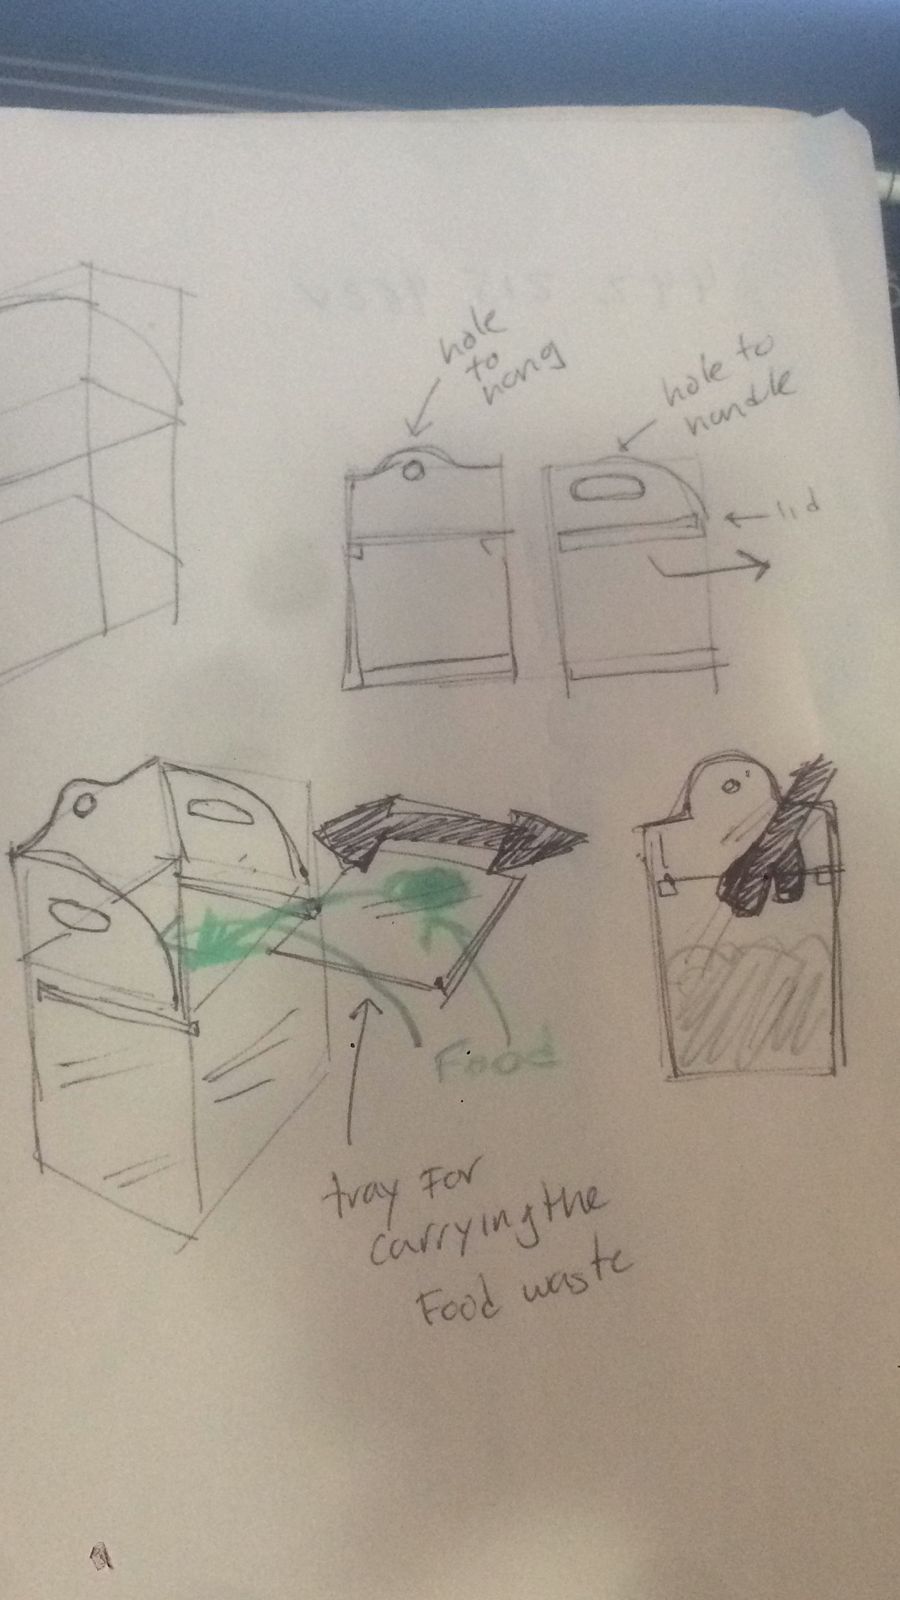 hole
to
hang
hole to
handle
lid
Food
tray For
carrying the
Food waste